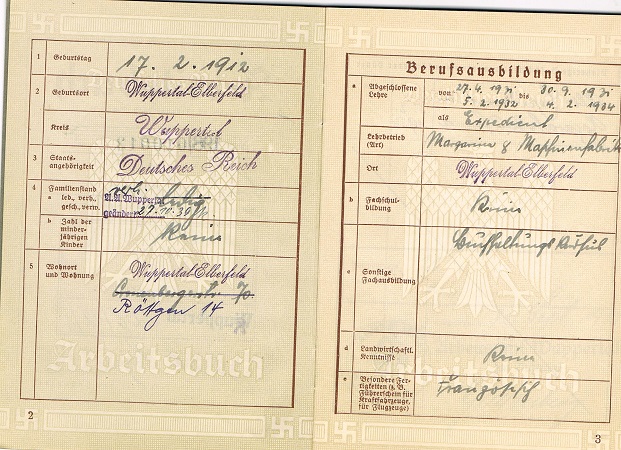 1 Geburtstag 17. 2. 1912
2 Geburtsort Wuppertal-Elberfeld
Kreis Wuppertal
3 Staats-
angehörigkeit Deutsches Reich
4 Familienstand verh.
a led., verh. ledig
gesch., verw.
A.A. Wuppertal
geändert 27.10.39
b Zahl der
minder-
jährigen
Kinder Keine
5 Wohnort
und Wohnung Wuppertal-Elberfeld
70
Röttgen 14
Arbeitsbuch
2
Berufsausbildung
a Abgeschlossene
Lehre von 27.4.1931 bis 30.9.1931
5.2.1932 4.2.1934
als Expedient
Lehrbetrieb
(Art) Margarine &
Ort Wuppertal-Elberfeld
b Fachschul-
bildung Keine
c Sonstige
Fachausbildung Buchhaltungskursus
d Landwirtschaftl.
Kenntnisse Keine
e Besondere Fer-
tigkeiten (z. B.
Führerschein für
Kraftfahrzeuge,
für Flugzeuge) Französisch
Arbeitsbuch
3